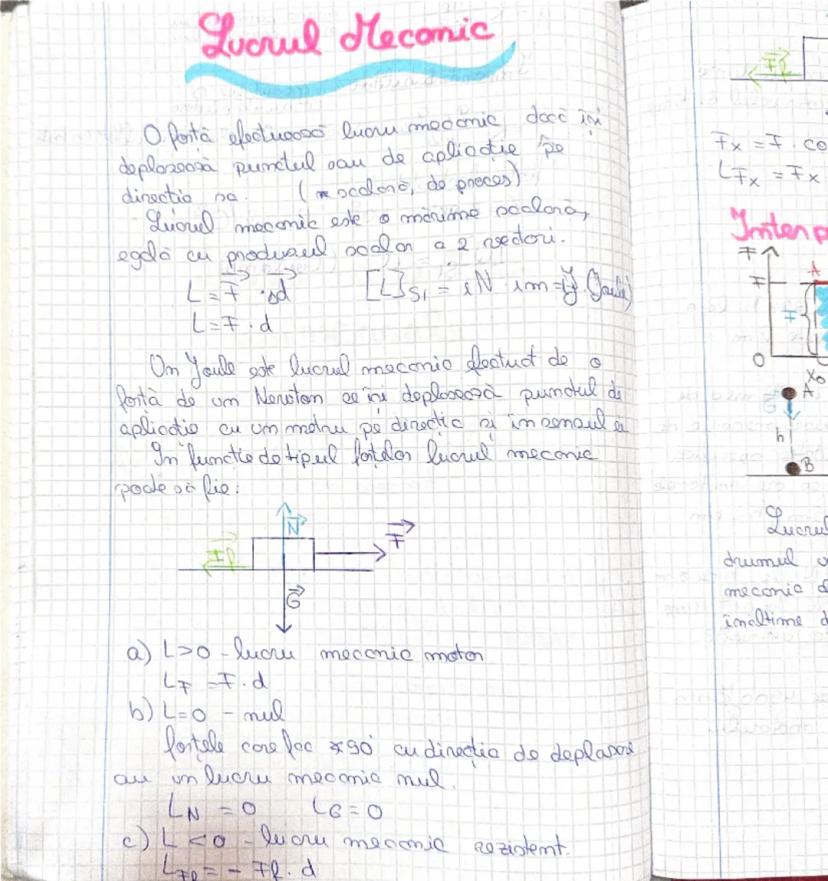 Lucrul Mecanic
O forță efectuează lucru mecanic, dacă își
deplasează punctul sau de apliacție pe
direcția sa. (scalară, de proces)
Lucrul mecanic este o mărime scalară,
egală cu produsul scalar a 2 vectori.
L = F · d [L]SI = 1N · 1m = 1J (Joule)
L = F · d
Un Joule este lucrul mecanic efectuat de o
forță de un Newton ce își deplasează punctul de
aplicație cu un metru pe direcția și în sensul ei
În funcție de tipul forțelor lucrul mecanic
poate să fie:
N
Ff F
G
a) L>0 - lucru mecanic motor
LF = F · d
b) L=0 - nul
forțele care fac ∢90° cu direcția de deplasare
au un lucru mecanic nul.
LN = 0 LG = 0
c) L<0 - lucru mecanic rezistent.
LFf = - Ff · d
Ff
Fx = F · co
LFx = Fx
Interp
F
F A
F
0 x0
A
G
h
B
Lucrul
drumul
mecanic d
înălțime d